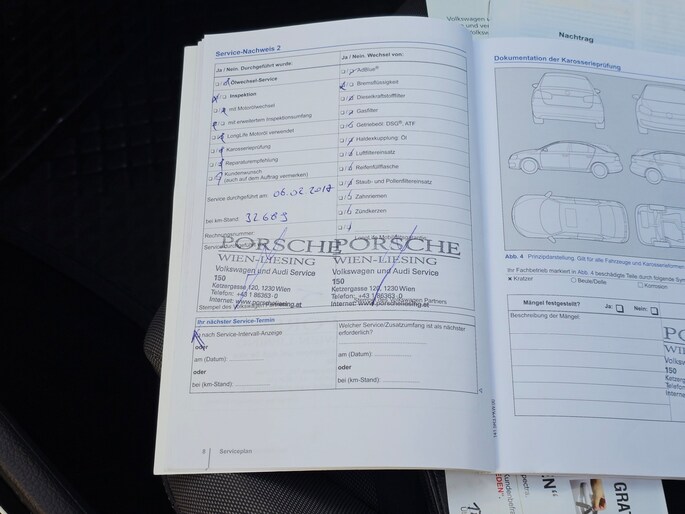 Volkswagen
Nachtrag
Service-Nachweis 2
Ja / Nein. Durchgeführt wurde:
Ölwechsel-Service
Inspektion
mit Motorölwechsel
mit erweitertem Inspektionsumfang
LongLife Motoröl verwendet
Karosserieprüfung
Reparaturempfehlung
Kundenwunsch
(auch auf dem Auftrag vermerken)
Service durchgeführt am: 06.02.2017
bei km-Stand: 32663
Rechnungsnummer:
Ja / Nein. Wechsel von:
AdBlue®
Bremsflüssigkeit
Dieselkraftstofffilter
Gasfilter
Getriebeöl: DSG®, ATF
Haldexkupplung: Öl
Luftfiltereinsatz
Reifenfüllflasche
Staub- und Pollenfiltereinsatz
Zahnriemen
Zündkerzen
PORSCHE
WIEN-LIESING
Volkswagen und Audi Service
150
Ketzergasse 120, 1230 Wien
Telefon: +43 1 86363 - 0
Internet: www.porscheliesing.at
Stempel des
PORSCHE
WIEN-LIESING
Volkswagen und Audi Service
150
Ketzergasse 120, 1230 Wien
Telefon: +43 1 86363 - 0
Internet: www.porscheliesing.at
Partners
Ihr nächster Service-Termin
nach Service-Intervall-Anzeige
oder
am (Datum):
oder
bei (km-Stand):
Welcher Service/Zusatzumfang ist als nächster
erforderlich?
am (Datum):
oder
bei (km-Stand):
8 Serviceplan
Dokumentation der Karosserieprüfung
Abb. 4 Prinzipdarstellung: Gilt für alle Fahrzeuge und Karosserieformen
Ihr Fachbetrieb markiert in Abb. 4 beschädigte Teile durch folgende
Kratzer Beule/Delle Korrosion
Mängel festgestellt? Ja: Nein:
Beschreibung der Mängel:
150
GRAT